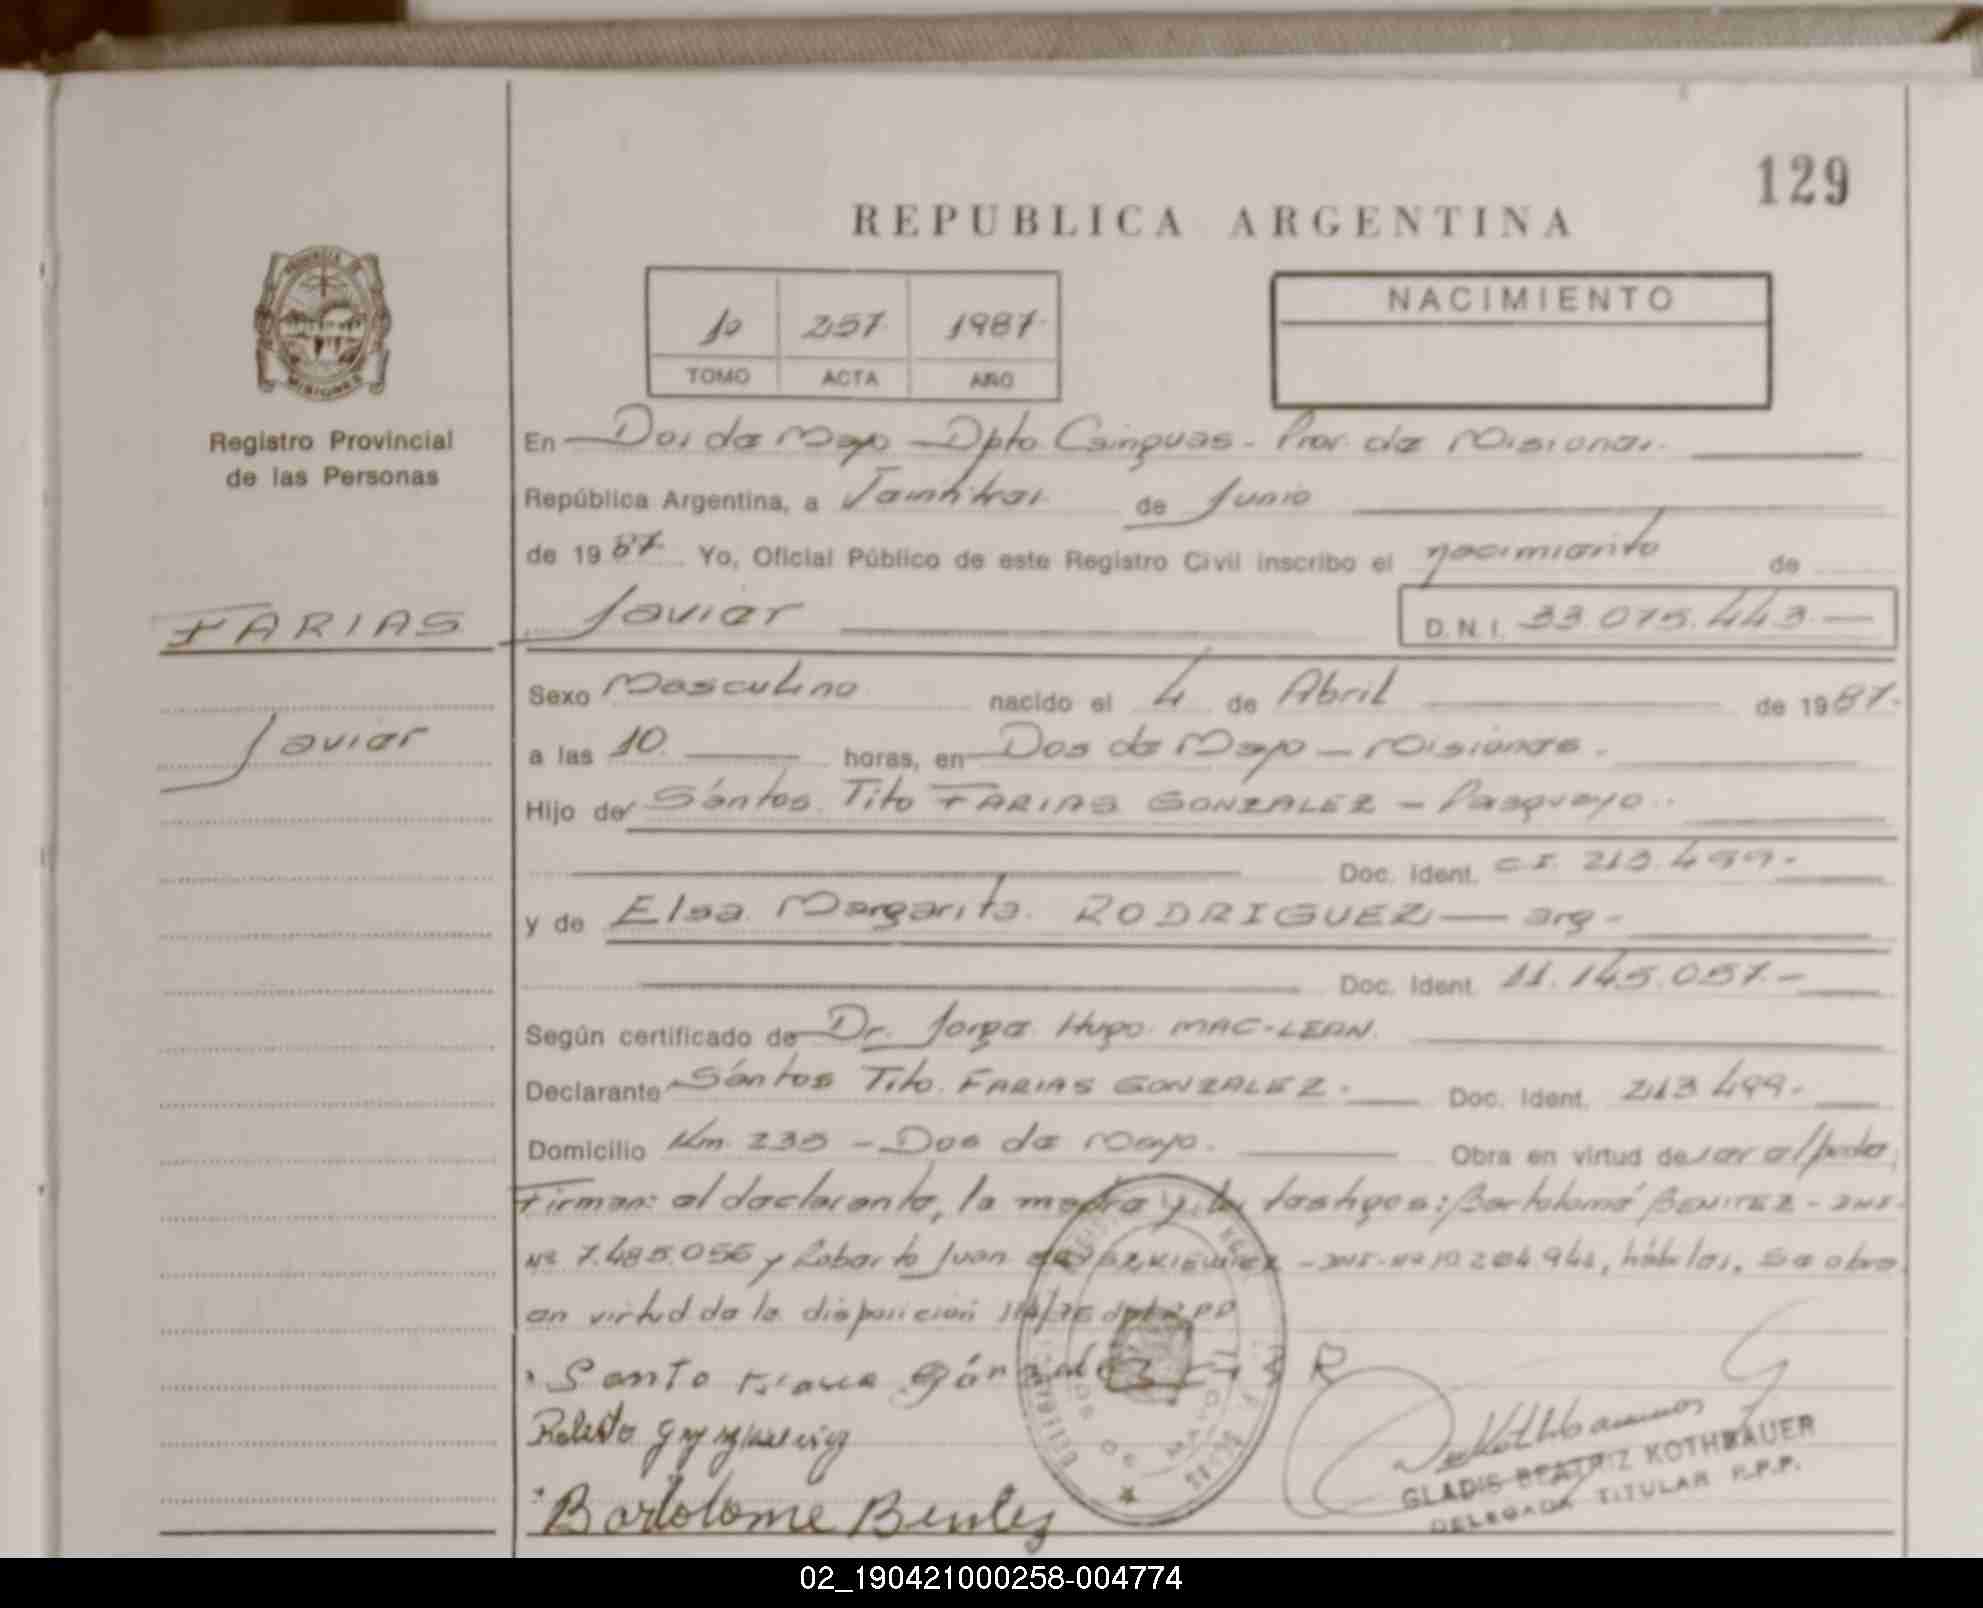 129
REPUBLICA ARGENTINA
PROVINCIA DE
MISIONES
Registro Provincial
de las Personas
1º 257 1987.
TOMO ACTA AÑO
NACIMIENTO
En Dos de Mayo - Dpto. Cainguas - Prov. de Misiones.
República Argentina, a de Junio
de 1987. Yo, Oficial Público de este Registro Civil inscribo el nacimiento de
FARIAS
Javier
D. N. I. 33.075.443.—
Sexo Masculino nacido el 4 de Abril de 1987.
Javier
a las 10. horas, en Dos de Mayo - Misiones.
Hijo de Santos Tito FARIAS GONZALEZ - Paraguayo.
Doc. Ident. C.I. 213.499.-
y de Elsa Margarita RODRIGUEZ — arg -
Doc. Ident. 11.145.057.-
Según certificado de Dr. Jorge Hugo MAC-LEAN.
Declarante Santos Tito FARIAS GONZALEZ. Doc. Ident. 213.499.
Domicilio Km. 235 - Dos de Mayo. Obra en virtud de ser el padre.
Firman: el declarante, la madre y los testigos: Bartolomé BENITEZ - DNI.
Nº 7.485.056 y Roberto Juan - DNI. Nº 10.204.944, hábiles. Se obra
en virtud de la disposición
Santo
Roberto
Bartolome Benitez
GLADIS BEATRIZ KOTHBAUER
DELEGADA TITULAR R.P.P.
02_190421000258-004774